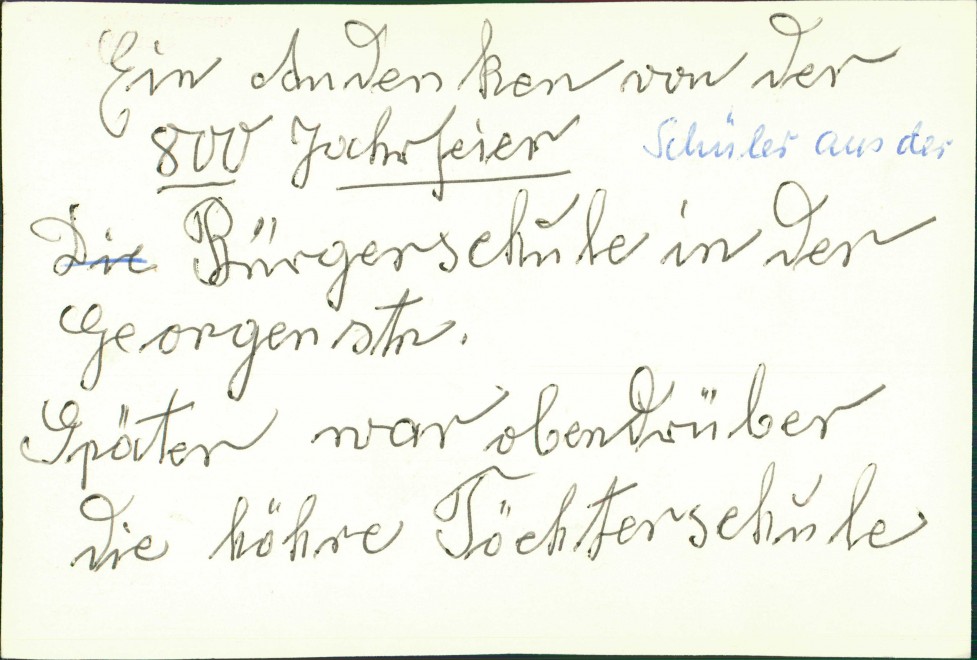 Ein Andenken von der
800 Jahrfeier Schüler aus der
Die Bürgerschule in der
Georgenstr.
Später war obendrüber
die höhre Töchterschule